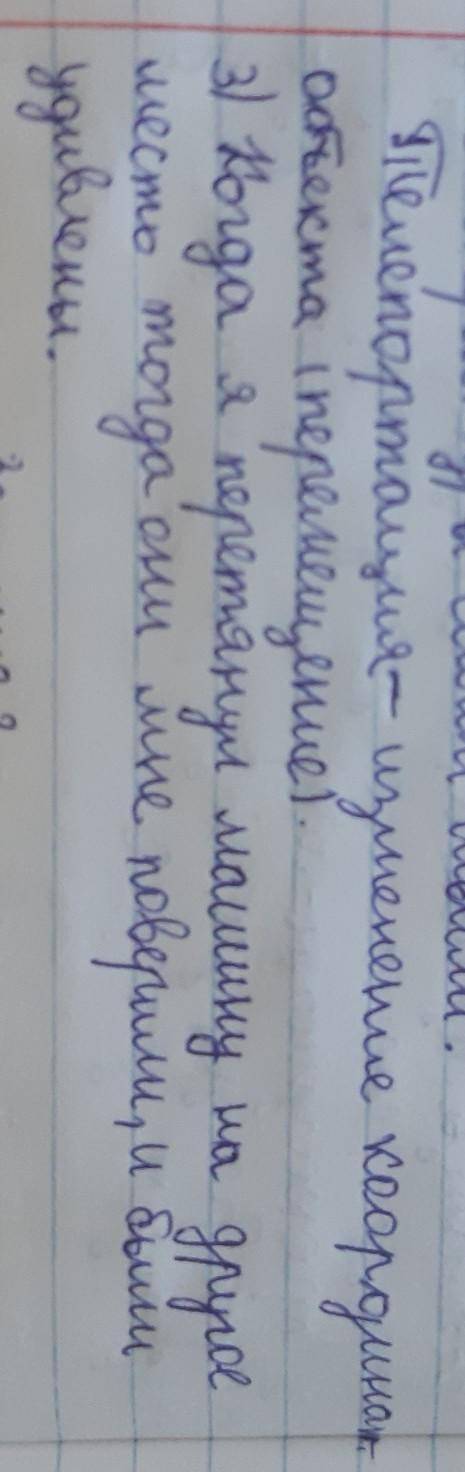 мыши.
Телепортация - изменение координат
объекта (перемещение).
3) Когда я перетянул машину на другое
место тогда они мне поверили, и были
удивлены.